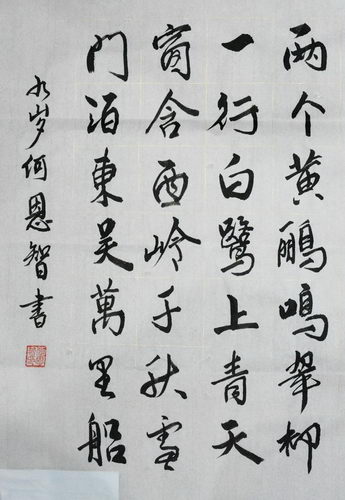 两个黄鹂鸣翠柳
一行白鷺上青天
窗含西岭千秋雪
門泊東吴萬里船
九岁何恩智書